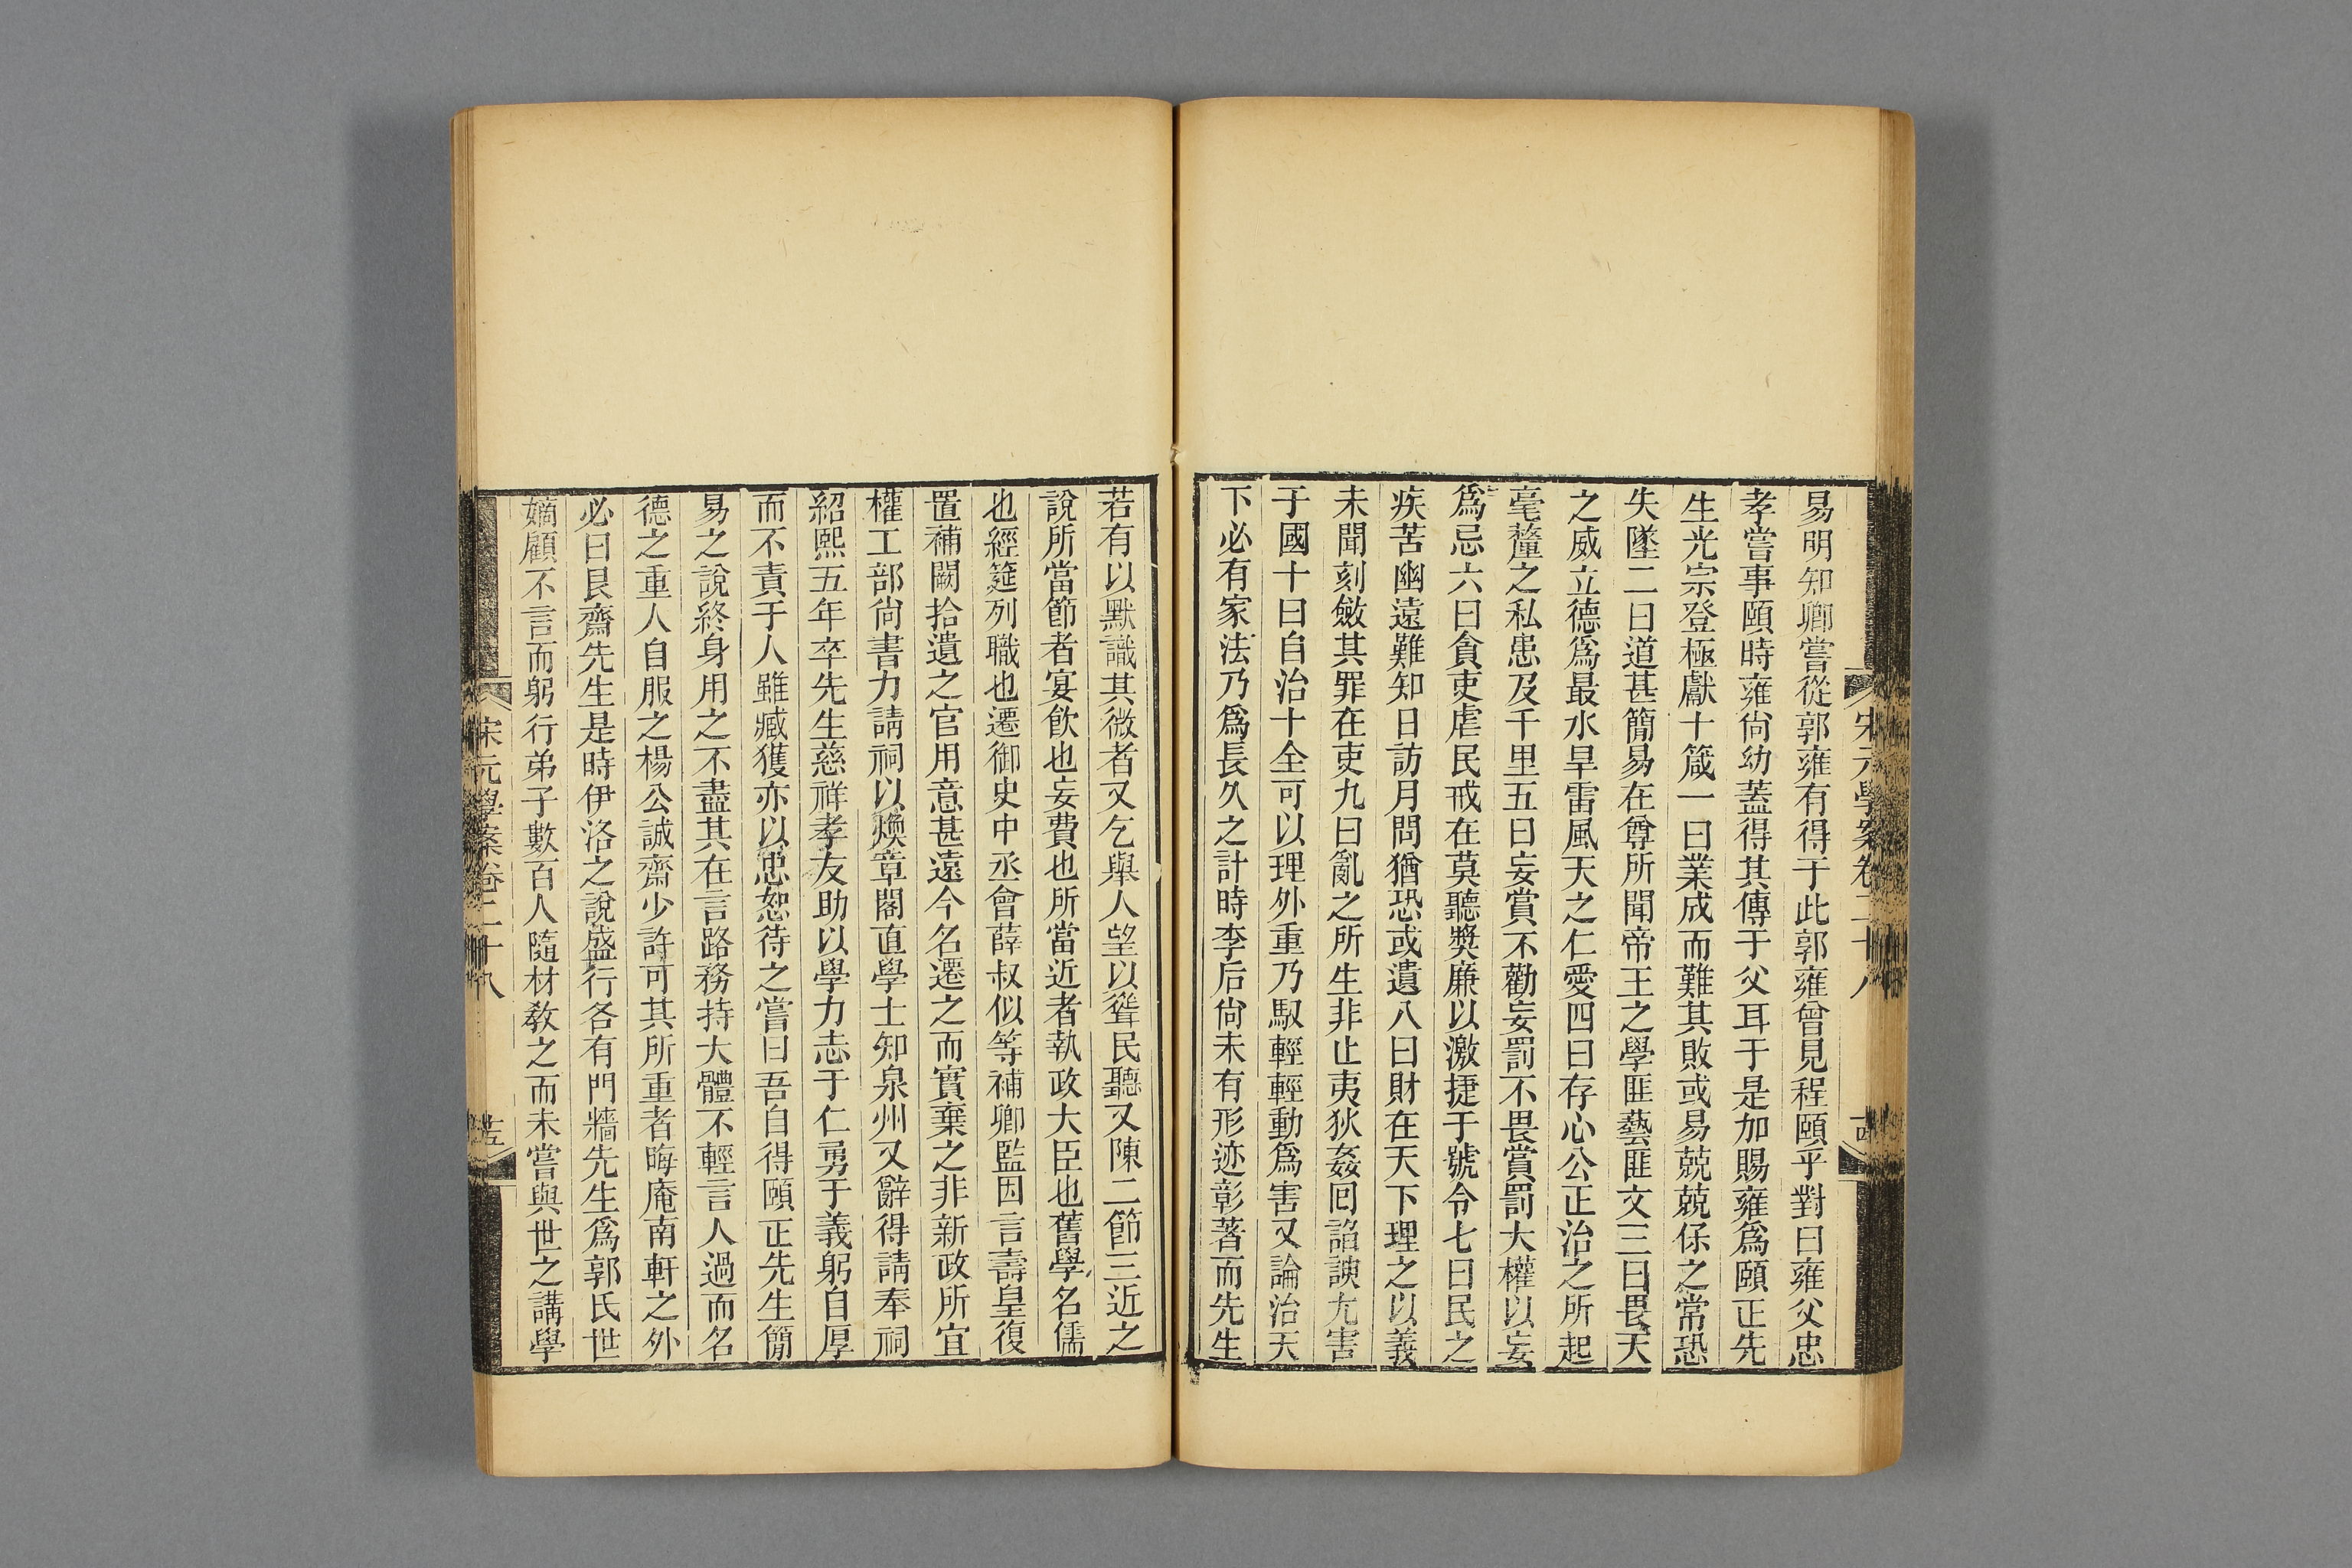 宋元學案卷二十八
易明知卿嘗從郭雍有得于此郭雍曾見程頤乎對曰雍父忠
孝嘗事頤時雍尙幼蓋得其傳于父耳于是加賜雍爲頤正先
生光宗登極獻十箴一曰業成而難其敗或易兢兢保之常恐
失墜二曰道甚簡易在尊所聞帝王之學匪藝匪文三曰畏天
之威立德爲最水旱雷風天之仁愛四曰存心公正治之所起
毫釐之私患及千里五曰妄賞不勸妄罰不畏賞罰大權以妄
爲忌六曰貪吏虐民戒在莫聽奬廉以激捷于號令七曰民之
疾苦幽遠難知日訪月問猶恐或遺八曰財在天下理之以義
未聞刻斂其罪在吏九曰亂之所生非止夷狄姦回諂諛尤害
于國十曰自治十全可以理外重乃馭輕輕動爲害又論治天
下必有家法乃爲長久之計時李后尙未有形迹彰著而先生
若有以默識其微者又乞舉人望以聳民聽又陳二節三近之
說所當節者宴飮也妄費也所當近者執政大臣也舊學名儒
也經筵列職也遷御史中丞會薛叔似等補卿監因言壽皇復
置補闕拾遺之官用意甚遠今名遷之而實棄之非新政所宜
權工部尙書力請祠以煥章閣直學士知泉州又辭得請奉祠
紹熙五年卒先生慈祥孝友助以學力志于仁勇于義躬自厚
而不責于人雖臧獲亦以忠恕待之嘗曰吾自得頤正先生簡
易之說終身用之不盡其在言路務持大體不輕言人過而名
德之重人自服之楊公誠齋少許可其所重者晦庵南軒之外
必曰艮齋先生是時伊洛之說盛行各有門牆先生爲郭氏世
嫡顧不言而躬行弟子數百人隨材敎之而未嘗與世之講學
宋元學案卷二十八